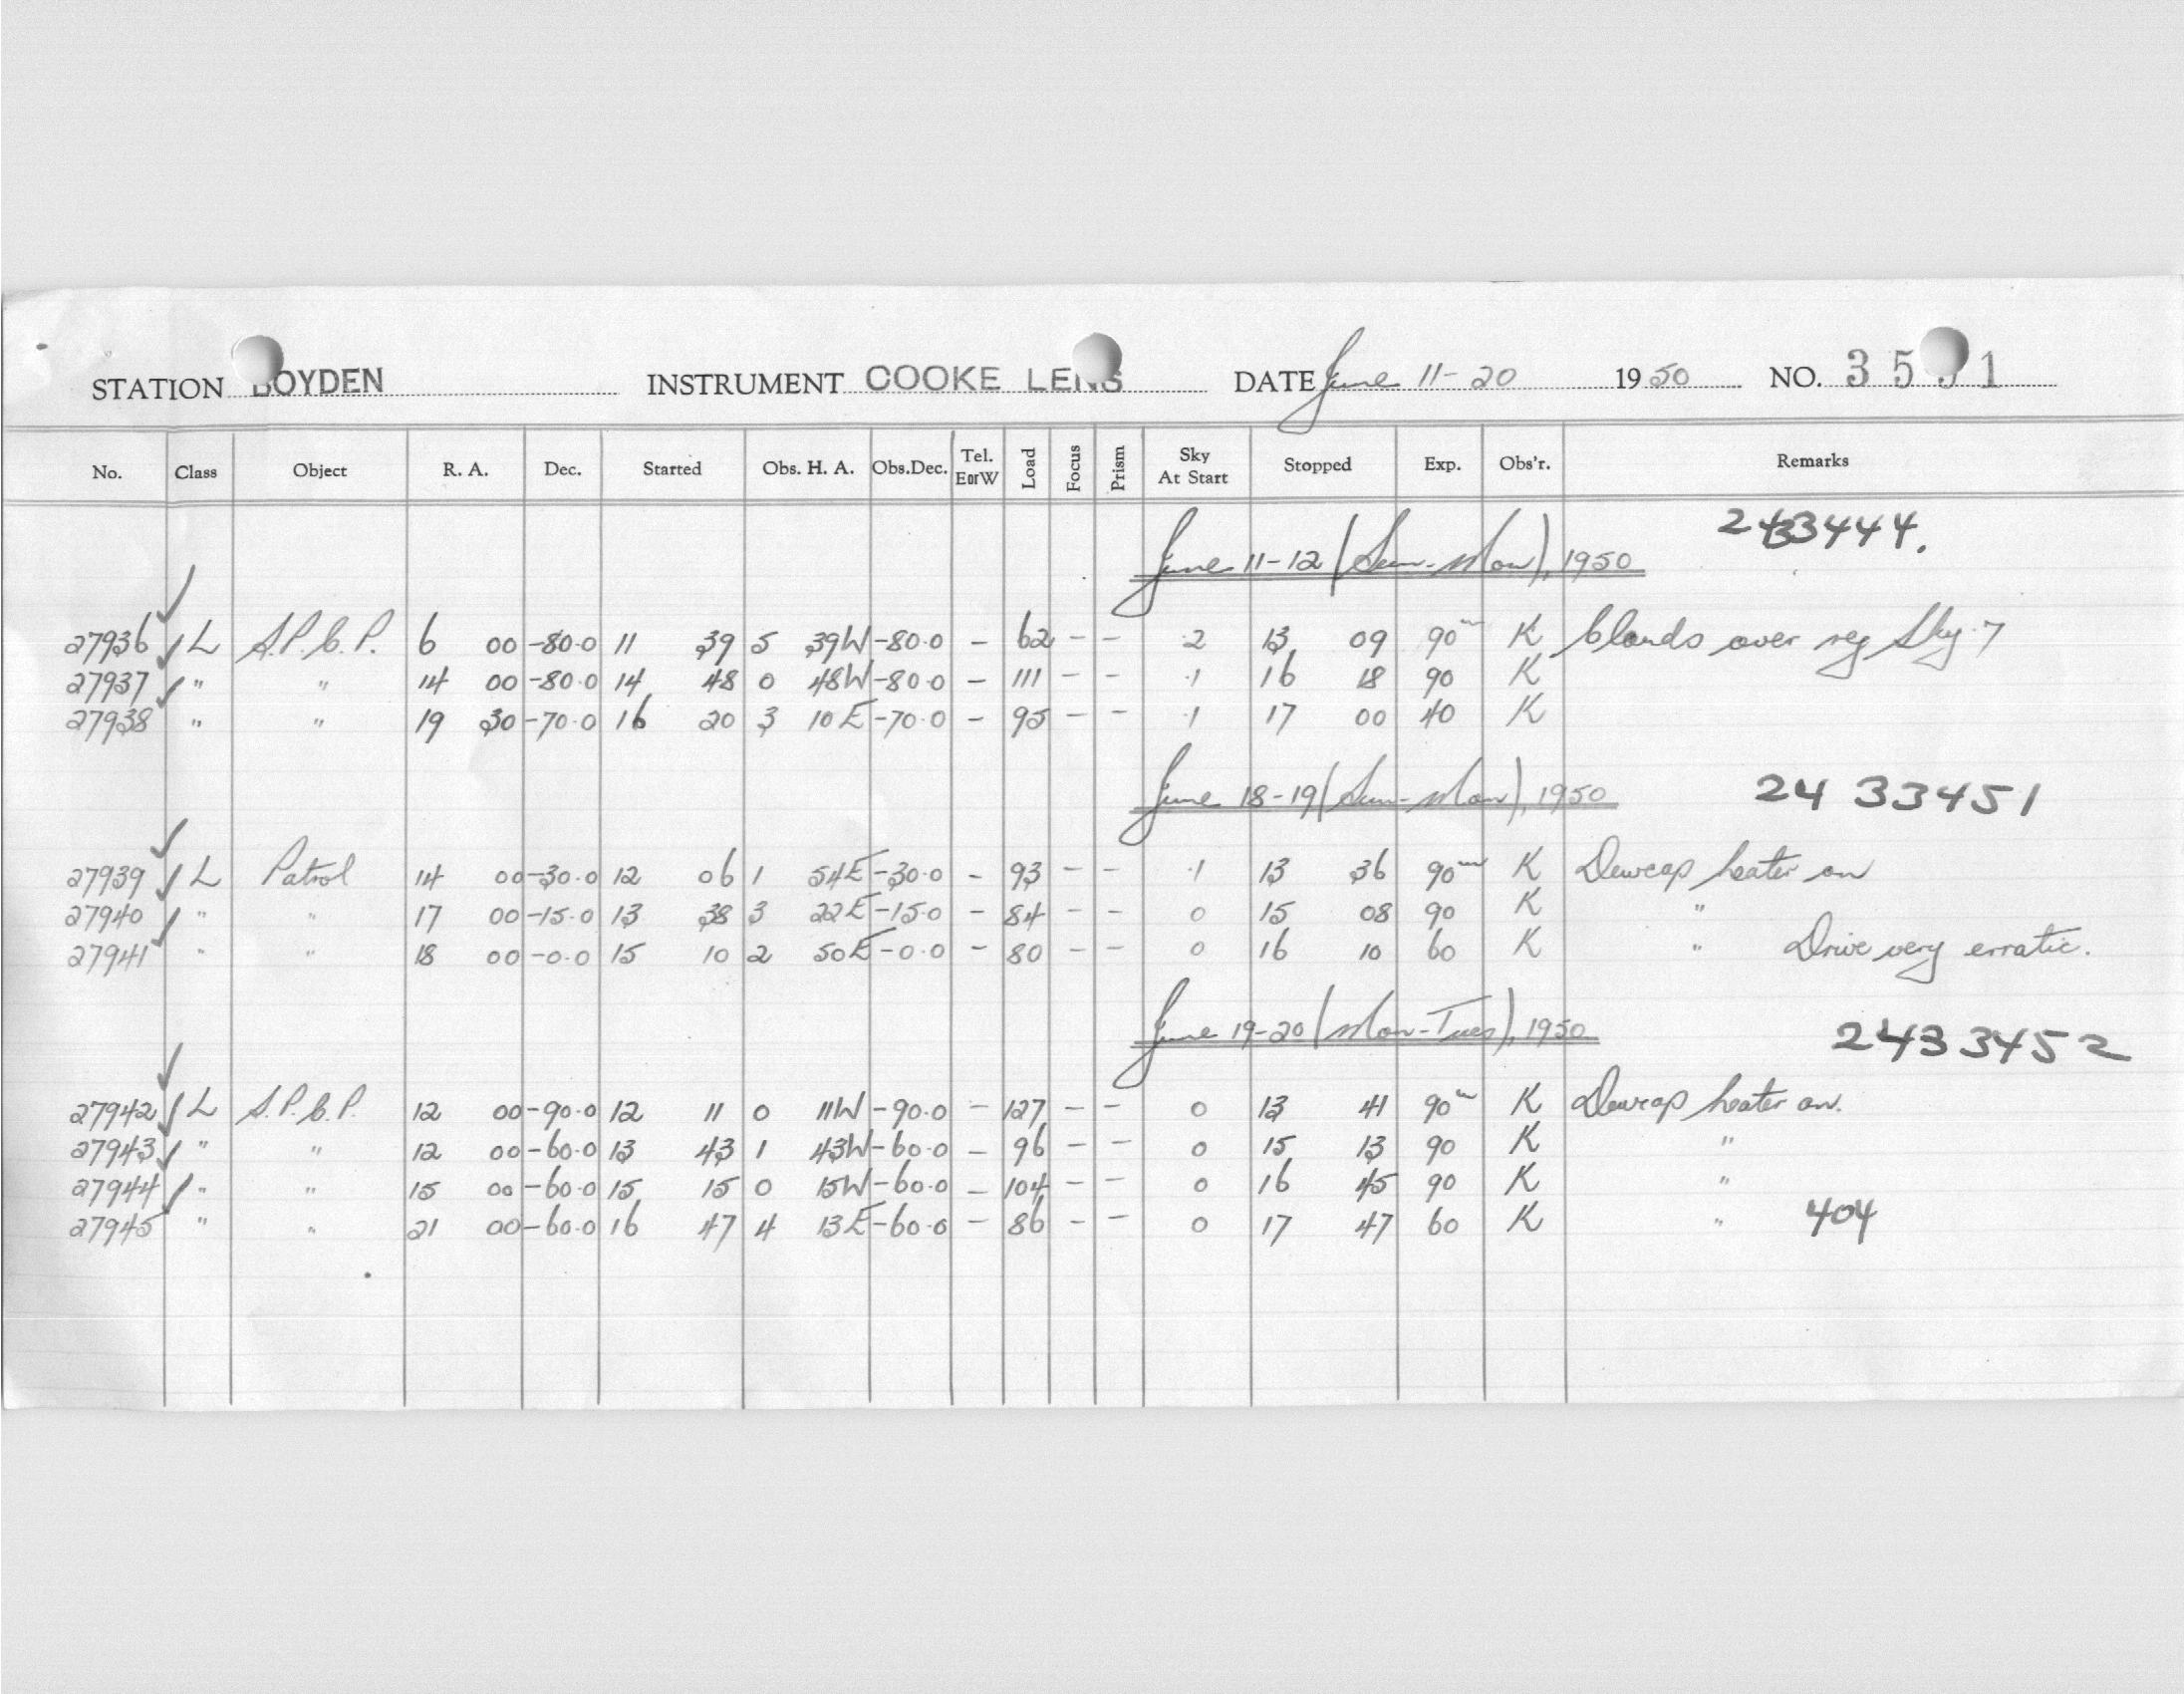 STATION BOYDEN INSTRUMENT COOKE LENS DATE June 11-20 1950 NO. 35 1
No. Class Object R. A. Dec. Started Obs. H. A. Obs.Dec. Tel. EorW Load Focus Prism Sky At Start Stopped Exp. Obs'r. Remarks
2433444.
June 11-12 (Sun-Mon), 1950
27936 L S.P.C.P. 6 00 -80.0 11 39 5 39W -80.0 - 62 - - .2 13 09 90m K Clouds over reg Sky .7
27937 " " 14 00 -80.0 14 48 0 48W -80.0 - 111 - - .1 16 18 90 K
27938 " " 19 30 -70.0 16 20 3 10E -70.0 - 95 - - .1 17 00 40 K
June 18-19 (Sun-Mon), 1950 24 33451
27939 L Patrol 14 00 -30.0 12 06 1 54E -30.0 - 93 - - .1 13 36 90m K Dewcap heater on
27940 " " 17 00 -15.0 13 38 3 22E -15.0 - 84 - - 0 15 08 90 K "
27941 " " 18 00 -0.0 15 10 2 50E -0.0 - 80 - - 0 16 10 60 K " Drive very erratic.
June 19-20 (Mon-Tues), 1950 2433452
27942 L S.P.C.P. 12 00 -90.0 12 11 0 11W -90.0 - 127 - - 0 13 41 90m K Dewcap heater on.
27943 " " 12 00 -60.0 13 43 1 43W -60.0 - 96 - - 0 15 13 90 K "
27944 " " 15 00 -60.0 15 15 0 15W -60.0 - 104 - - 0 16 45 90 K "
27945 " " 21 00 -60.0 16 47 4 13E -60.0 - 86 - - 0 17 47 60 K " 404